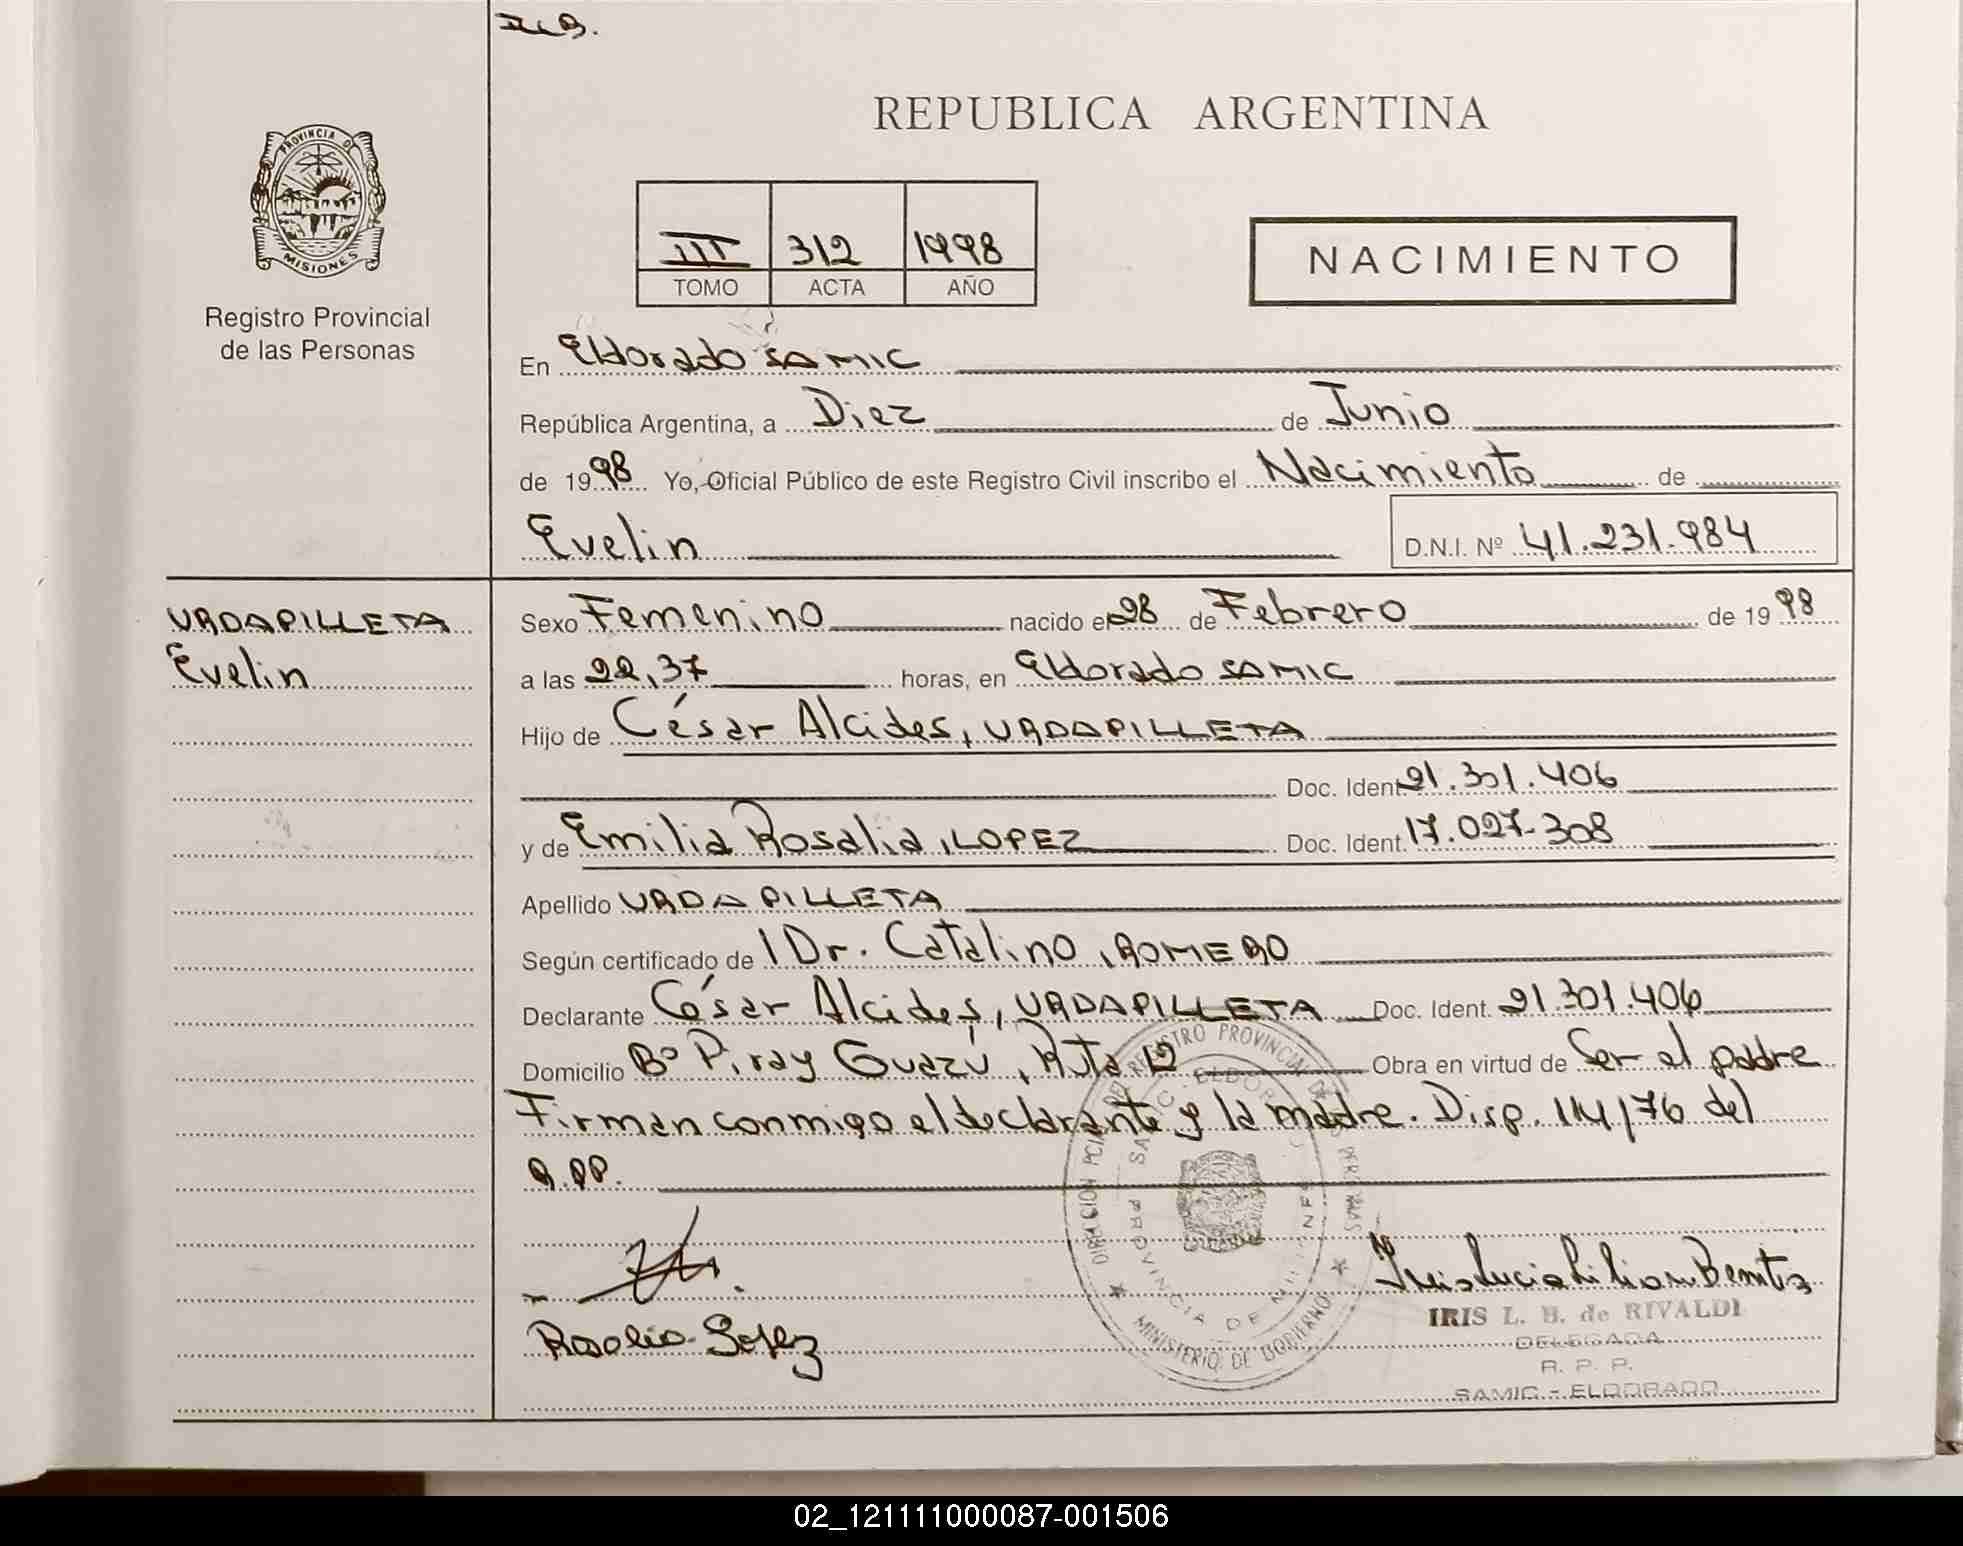 REPUBLICA ARGENTINA
PROVINCIA D
MISIONES
Registro Provincial
de las Personas
III 312 1998
TOMO ACTA AÑO
NACIMIENTO
En Eldorado SAMIC
República Argentina, a Diez de Junio
de 1998 Yo, Oficial Público de este Registro Civil inscribo el Nacimiento de
Evelin D.N.I. Nº 41.231.984
URDAPILLETA
Evelin
Sexo Femenino nacido el 28 de Febrero de 1998
a las 22,37 horas, en Eldorado SAMIC
Hijo de César Alcides, URDAPILLETA
Doc. Ident. 21.301.406
y de Emilia Rosalia, LOPEZ Doc. Ident. 17.027.308
Apellido URDAPILLETA
Según certificado de / Dr. Catalino, ROMERO
Declarante César Alcides, URDAPILLETA Doc. Ident. 21.301.406
Domicilio Bº Piray Guazú, Ruta 12 Obra en virtud de Ser el padre
Firman conmigo el declarante y la madre. Disp. 114/76 del
R.PP.
Iris Lucia Lilian Benitez
IRIS L. B. de RIVALDI
DELEGADA
R. P. P.
SAMIC - ELDORADO
Rosalia Lopez
DIRECCION PCIAL DEL REGISTRO PROVINCIAL DE LAS PERSONAS
MINISTERIO DE GOBIERNO
SAMIC - ELDORADO
PROVINCIA DE MISIONES
02_121111000087-001506